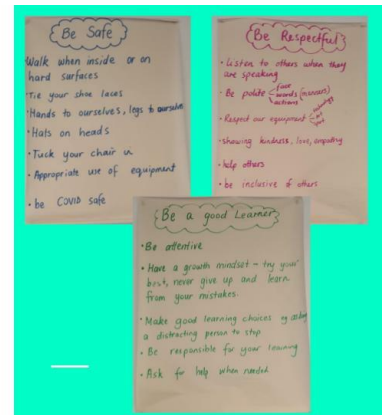 Be Safe
Walk when inside or on
hard surfaces
Tie your shoe laces
• Hands to ourselves, legs to ourselves
• Hats on heads
• Tuck your chair in
• Appropriate use of equipment
• be COVID safe
Be Respectful
• Listen to others when they
are speaking
• Be polite face
words (manners)
actions
• Respect our equipment
• showing kindness, love, empathy
• help others
• be inclusive of others
Be a good Learner
• Be attentive
• Have a growth mindset - try your
best, never give up and learn
from your mistakes.
• Make good learning choices eg asking
a distracting person to stop
• Be responsible for your learning
• Ask for help when needed